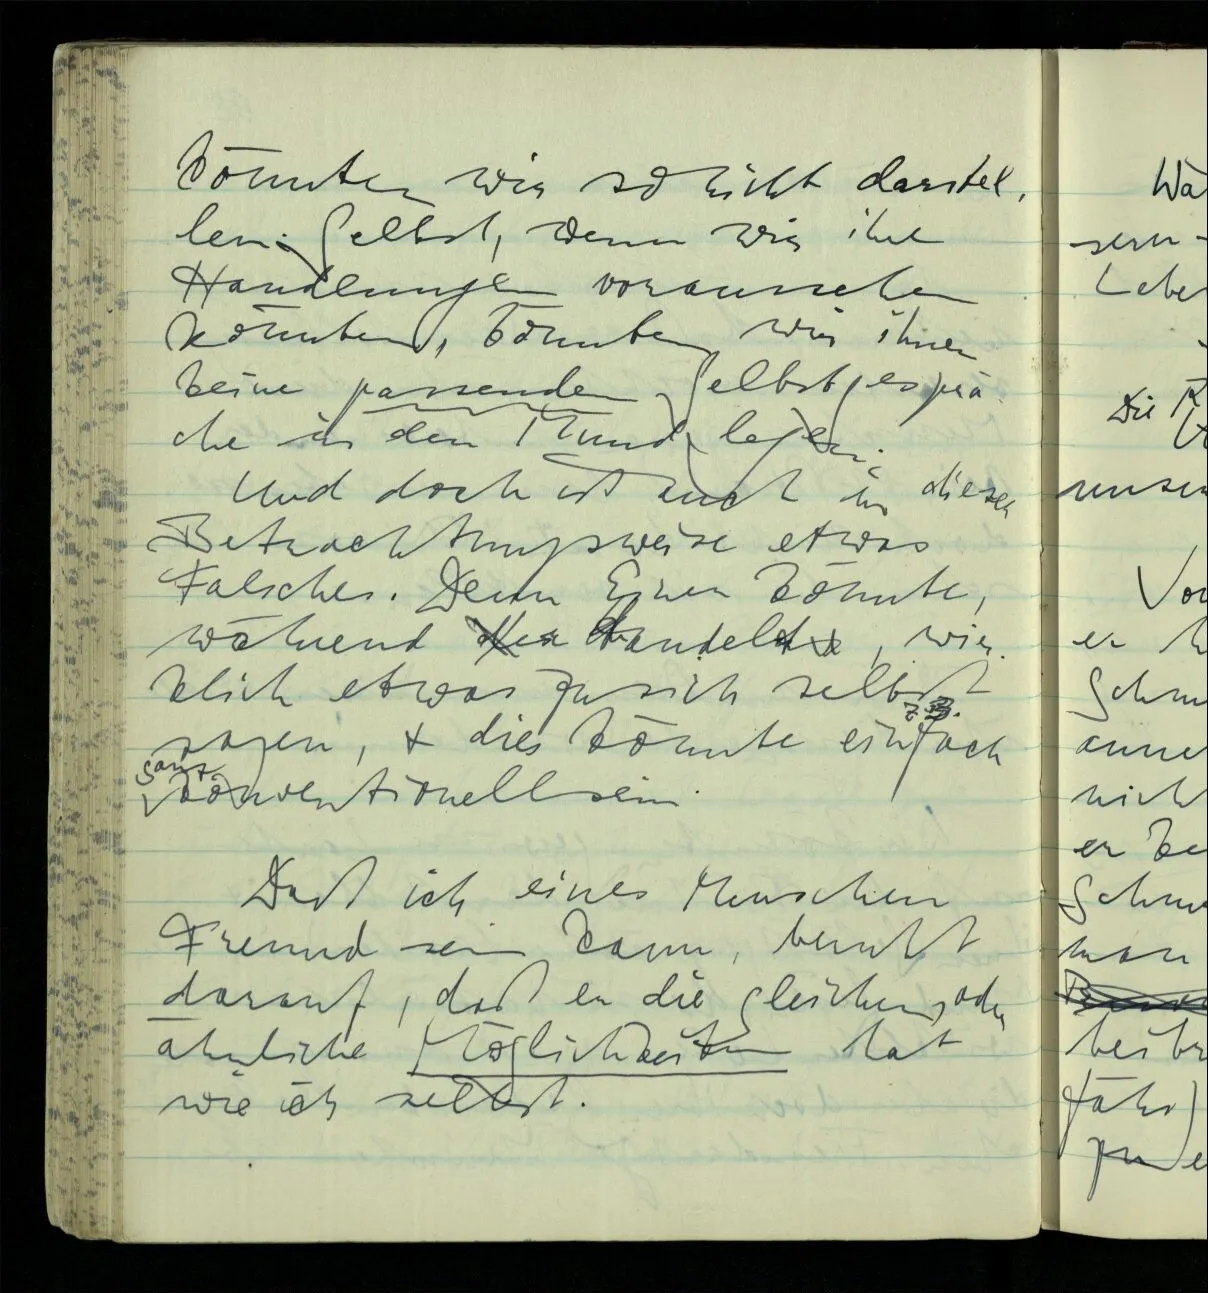 könnten wir so nicht darstel-
len. Selbst, wenn wir ihre
Handlungen voraussehen
könnten, könnten wir ihnen
keine passenden Selbstgesprä-
che in den Mund legen.
Und doch ist auch in dieser
Betrachtungsweise etwas
Falsches. Denn Einer könnte,
während er handelt, wir-
klich etwas zu sich selbst
z.B.
sagen, & dies könnte einfach
ganz
konventionell sein.
Daß ich eines Menschen
Freund sein kann, beruht
darauf, daß er die gleichen, oder
ähnliche Möglichkeiten hat
wie ich selbst.
Wä
sern
Leber
Die
unser
Vor
er
Schm
nich
er
man